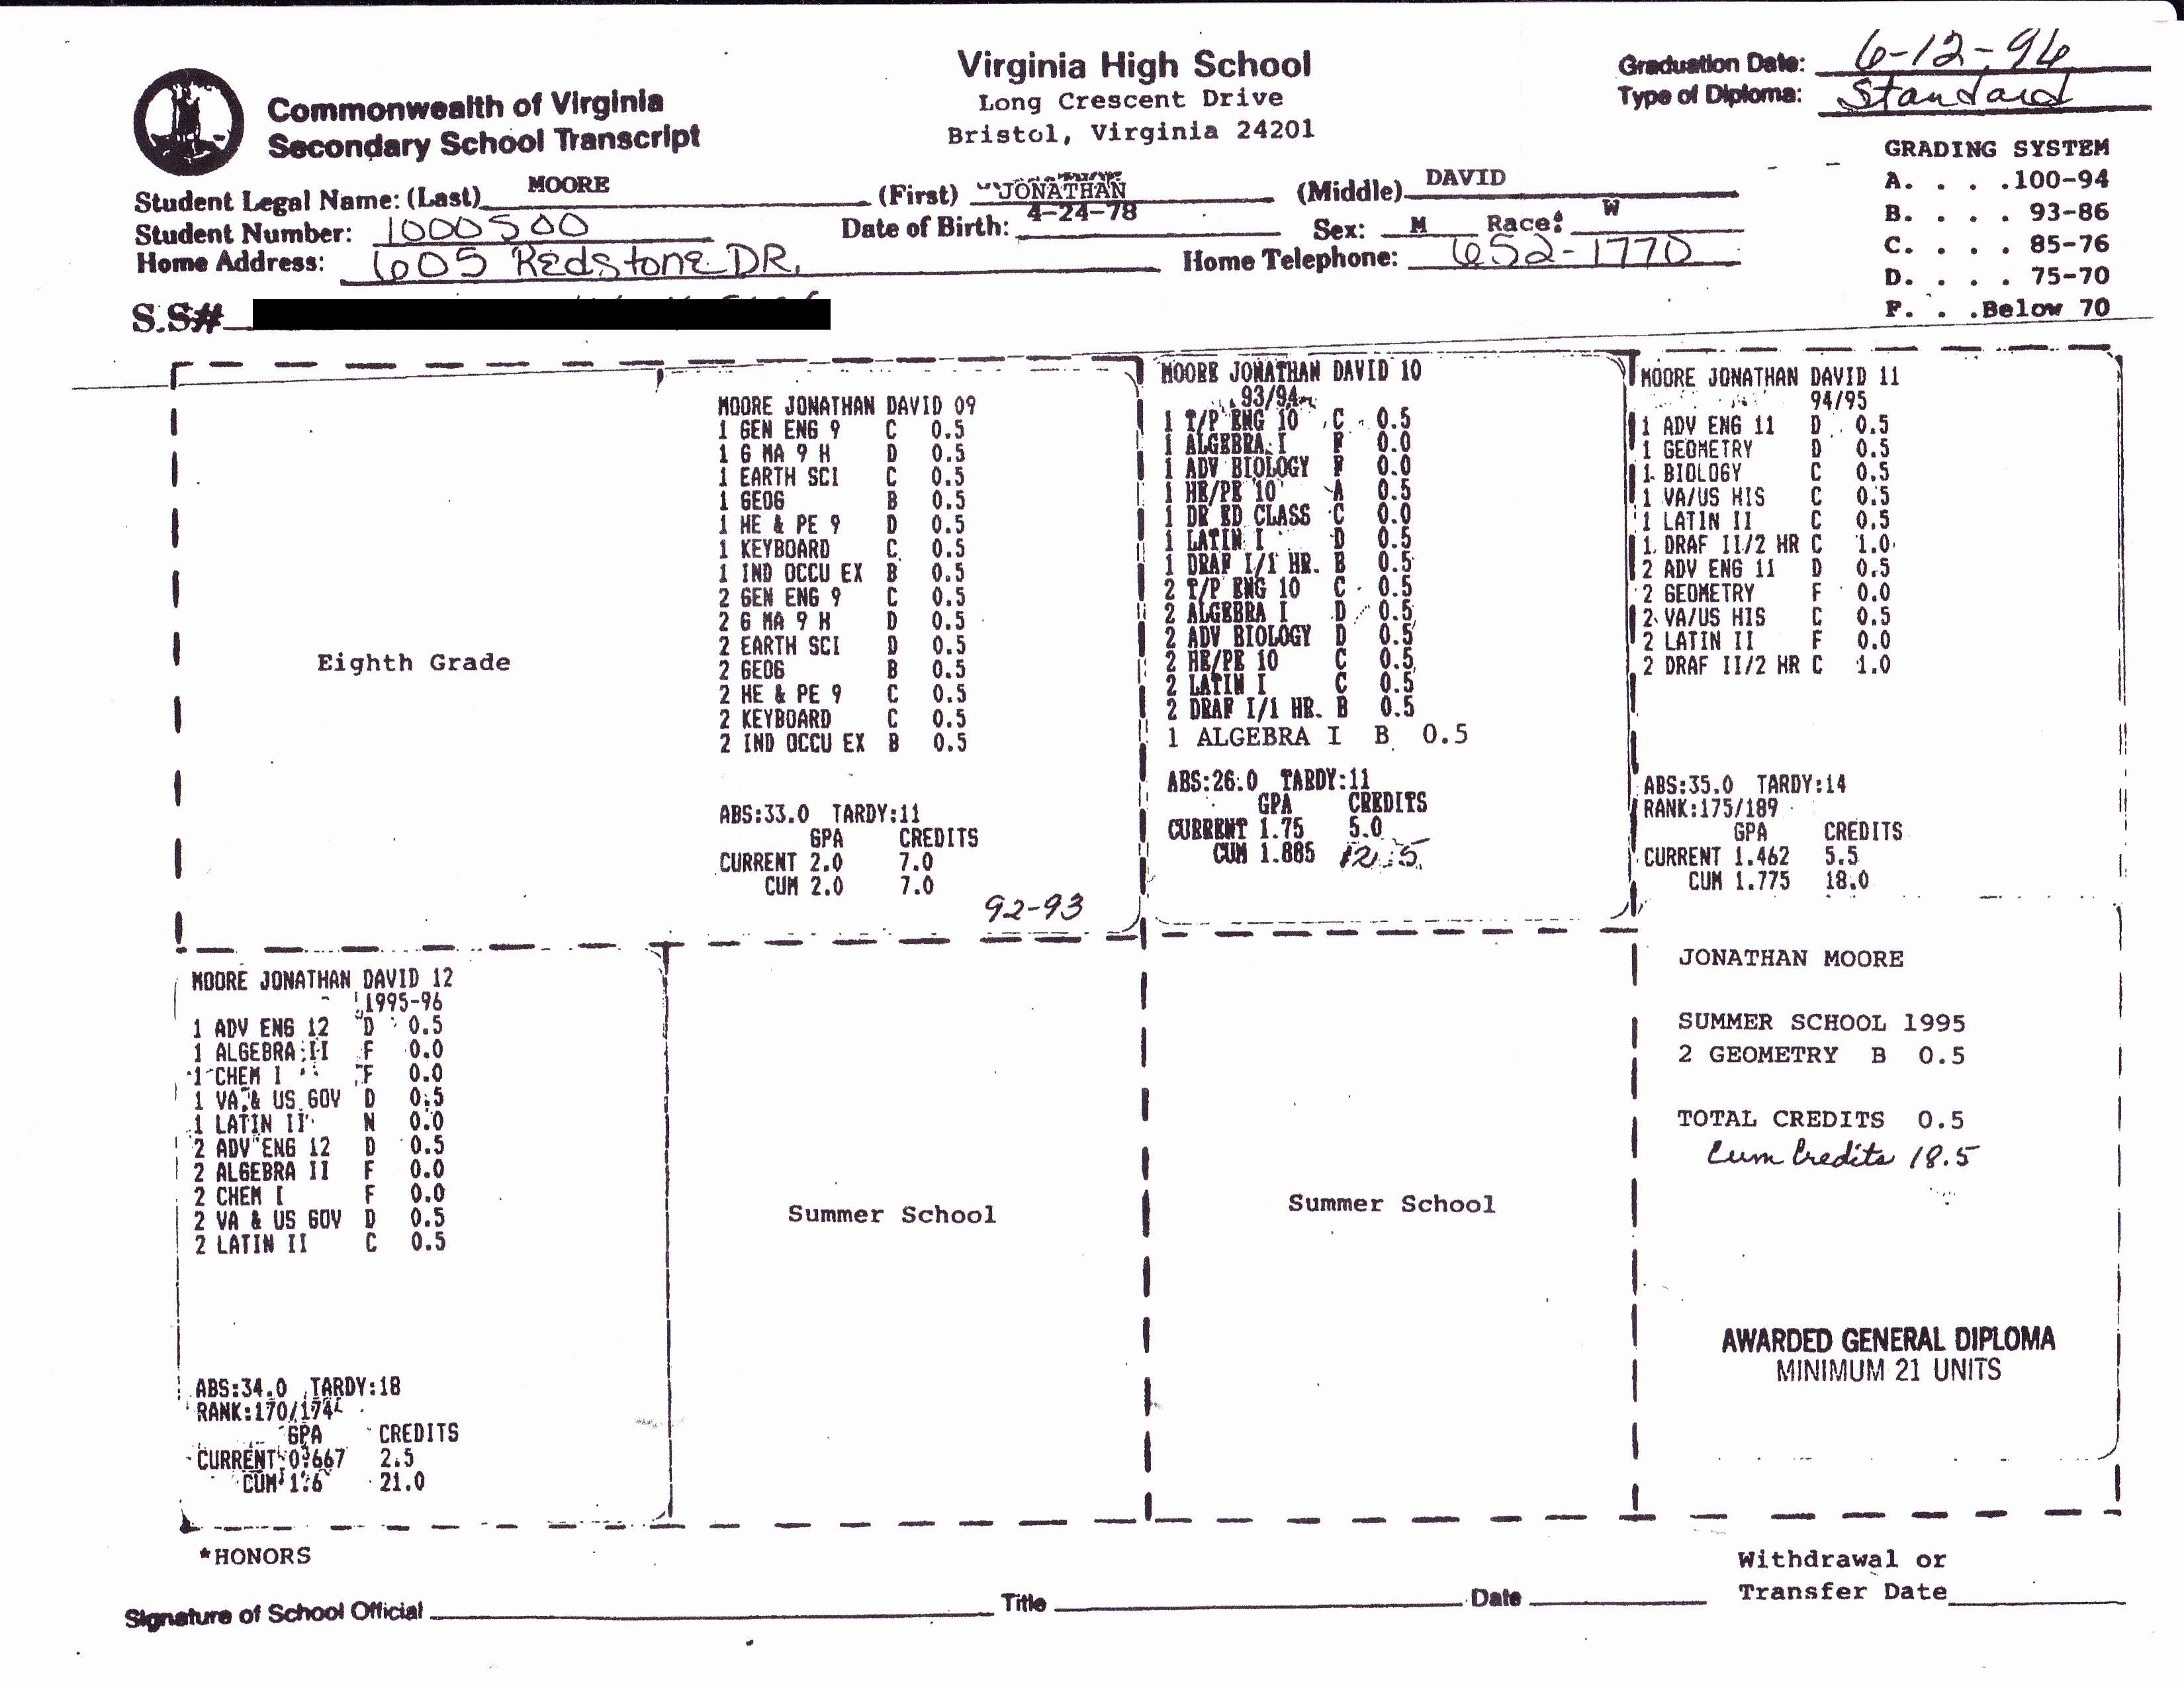 Virginia High School
Long Crescent Drive
Bristol, Virginia 24201
Commonwealth of Virginia
Secondary School Transcript
Graduation Date: 6-12-96
Type of Diploma: Standard
Student Legal Name: (Last) MOORE (First) JONATHAN (Middle) DAVID
Student Number: 1000500 Date of Birth: 4-24-78 Sex: M Race: W
Home Address: 605 Redstone DR. Home Telephone: 652-1770
S.S#
GRADING SYSTEM
A. . . .100-94
B. . . . 93-86
C. . . . 85-76
D. . . . 75-70
F. . .Below 70
Eighth Grade
MOORE JONATHAN DAVID 09
1 GEN ENG 9 C 0.5
1 G MA 9 H D 0.5
1 EARTH SCI C 0.5
1 GEOG B 0.5
1 HE & PE 9 D 0.5
1 KEYBOARD C 0.5
1 IND OCCU EX B 0.5
2 GEN ENG 9 C 0.5
2 G MA 9 H D 0.5
2 EARTH SCI D 0.5
2 GEOG B 0.5
2 HE & PE 9 C 0.5
2 KEYBOARD C 0.5
2 IND OCCU EX B 0.5
ABS:33.0 TARDY:11
GPA CREDITS
CURRENT 2.0 7.0
CUM 2.0 7.0
92-93
MOORE JONATHAN DAVID 10
93/94
1 T/P ENG 10 C 0.5
1 ALGEBRA I F 0.0
1 ADV BIOLOGY F 0.0
1 HE/PE 10 A 0.5
1 DR ED CLASS C 0.0
1 LATIN I D 0.5
1 DRAF I/1 HR. B 0.5
2 T/P ENG 10 C 0.5
2 ALGEBRA I D 0.5
2 ADV BIOLOGY D 0.5
2 HE/PE 10 C 0.5
2 LATIN I C 0.5
2 DRAF I/1 HR. B 0.5
1 ALGEBRA I B 0.5
ABS:26.0 TARDY:11
GPA CREDITS
CURRENT 1.75 5.0
CUM 1.885 12.5
MOORE JONATHAN DAVID 11
94/95
1 ADV ENG 11 D 0.5
1 GEOMETRY D 0.5
1 BIOLOGY C 0.5
1 VA/US HIS C 0.5
1 LATIN II C 0.5
1 DRAF II/2 HR C 1.0
2 ADV ENG 11 D 0.5
2 GEOMETRY F 0.0
2 VA/US HIS C 0.5
2 LATIN II F 0.0
2 DRAF II/2 HR C 1.0
ABS:35.0 TARDY:14
RANK:175/189
GPA CREDITS
CURRENT 1.462 5.5
CUM 1.775 18.0
MOORE JONATHAN DAVID 12
1995-96
1 ADV ENG 12 D 0.5
1 ALGEBRA II F 0.0
1 CHEM I F 0.0
1 VA & US GOV D 0.5
1 LATIN II N 0.0
2 ADV ENG 12 D 0.5
2 ALGEBRA II F 0.0
2 CHEM I F 0.0
2 VA & US GOV D 0.5
2 LATIN II C 0.5
ABS:34.0 TARDY:18
RANK:170/174
GPA CREDITS
CURRENT 0.667 2.5
CUM 1.6 21.0
Summer School
Summer School
JONATHAN MOORE
SUMMER SCHOOL 1995
2 GEOMETRY B 0.5
TOTAL CREDITS 0.5
Cum Credits 18.5
AWARDED GENERAL DIPLOMA
MINIMUM 21 UNITS
*HONORS
Signature of School Official Title Date
Withdrawal or
Transfer Date